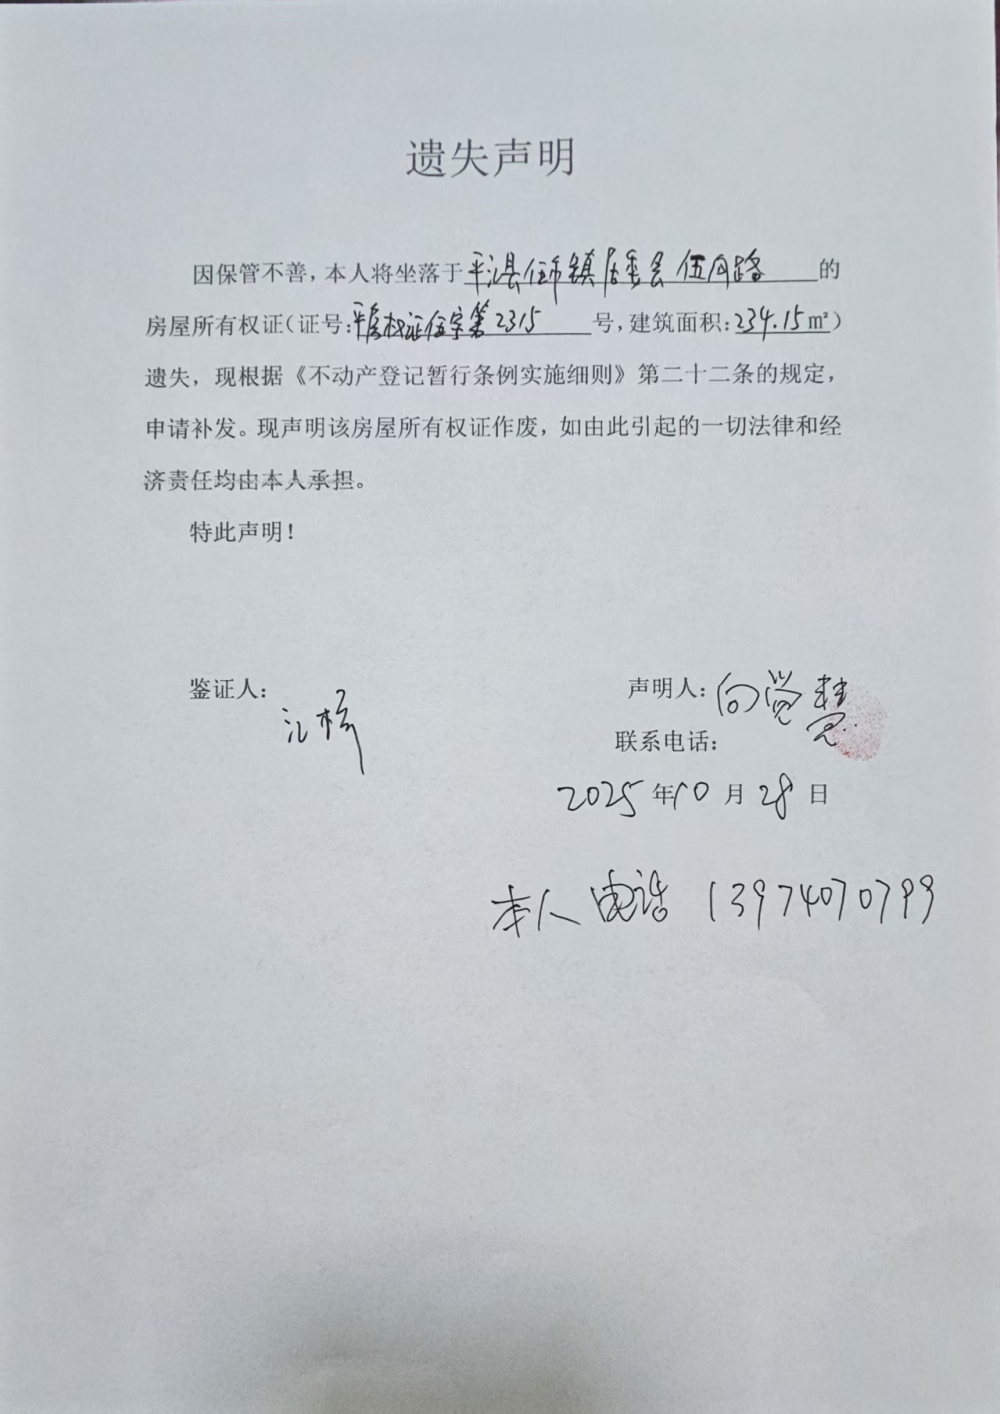 遗失声明
因保管不善，本人将坐落于平江县伍市镇居委会伍向路的
房屋所有权证（证号：平房权证伍字第2315号，建筑面积：234.15㎡）
遗失，现根据《不动产登记暂行条例实施细则》第二十二条的规定，
申请补发。现声明该房屋所有权证作废，如由此引起的一切法律和经
济责任均由本人承担。
特此声明！
鉴证人：
声明人：向觉慧
联系电话：
2025年10月28日
本人电话 13974070799